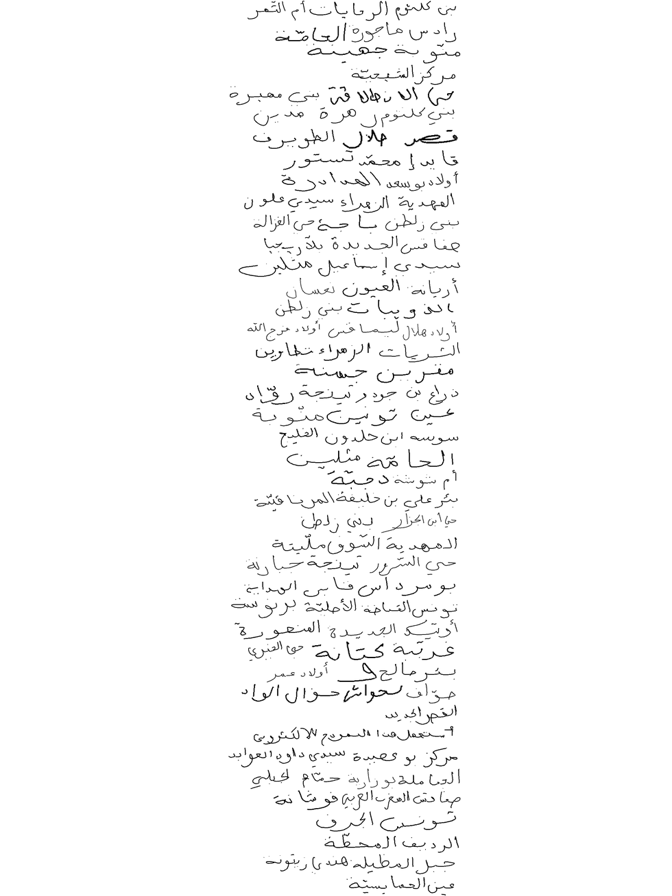 بني كلثوم الرمايات أم الثمر
رادس ماجورة الحامّة
منوبة جهينة
مركز الشيحيّة
حي الانطلاقة بني مهيرة
بني كلثوم زهرة مدين
قصر هلال الطويرف
قايد محمّد تستور
أولاد بوسعد الهدادرة
المهدية الزهراء سيدي علون
بني زلطن باجة حي الغزالة
صفاقس الجديدة بلاّريجيا
سيدي إسماعيل مثلين
أريانة العيون نعسان
الذويبات بني زلطن
أولاد هلال ليماقس أولاد فرج الله
الشريات الزهراء تطاوين
مقرين حسنة
ذراع بن جودر تينجة روّاد
عين تونين منّوبة
سوسة ابن خلدون الفليج
الحامّة مثلين
أم شوشة دحيّة
بئر علي بن خليفة المرناقيّة
حي ابن الجزّار بني زلطن
المهدية الشوق مليتة
حي السرور تينجة جبارنة
بومرداس قابس الهداية
تونس الأحليّة برنوسة
أوتيك الجديدة المنصورة
غريبة كتانة حي
بئر صالح أولاد عمر
صوّاف حوال الواد
القصر الجديد
أستعمل هذا النموذج الالكتروني
مركز بوعصيدة سيدي داود العوابد
العاملة بورارية حمّام
صفاقس المغرب العربي فوشانة
تونس الجرف
الرديف المحطّة
جبل المظيلة هندي زيتونة
عين الحمايسيّة